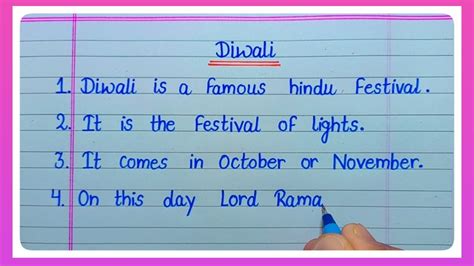 Diwali
1. Diwali is a famous hindu Festival.
2. It is the Festival of lights.
3. It comes in October or November.
4. On this day Lord Rama